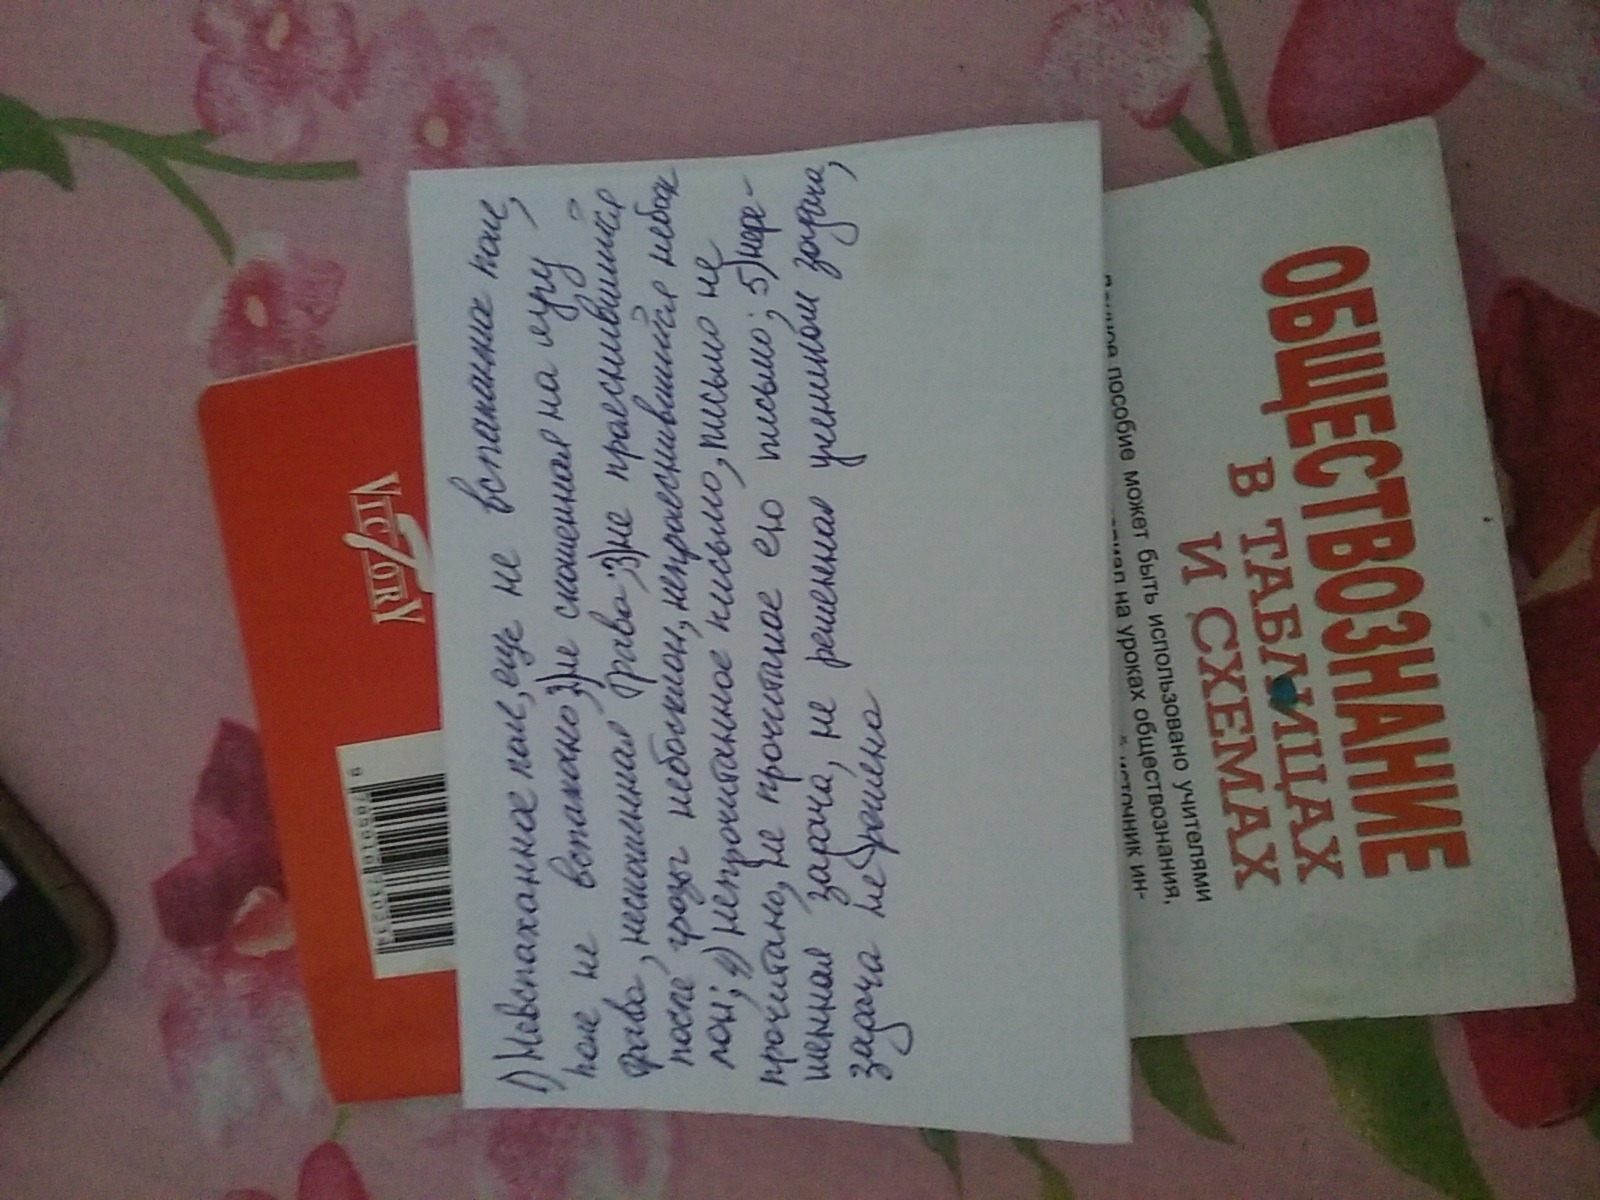 1) Невспаханное поле, еще не вспаханное поле,
поле не вспахано; 2) не скошенная на лугу
трава, нескошенная трава; 3) не прояснившийся
после грозы небосклон, непрояснившийся небоск
лон; 4) непрочитанное письмо, письмо не
прочитано, не прочитанное ею письмо; 5) нере-
шенная задача, не решенная учеником задача,
задача не решена
VICTORY
9 785916 730234
ОБЩЕСТВОЗНАНИЕ
В ТАБЛИЦАХ
И СХЕМАХ
пособие может быть использовано учителями
на уроках обществознания,
источник ин-